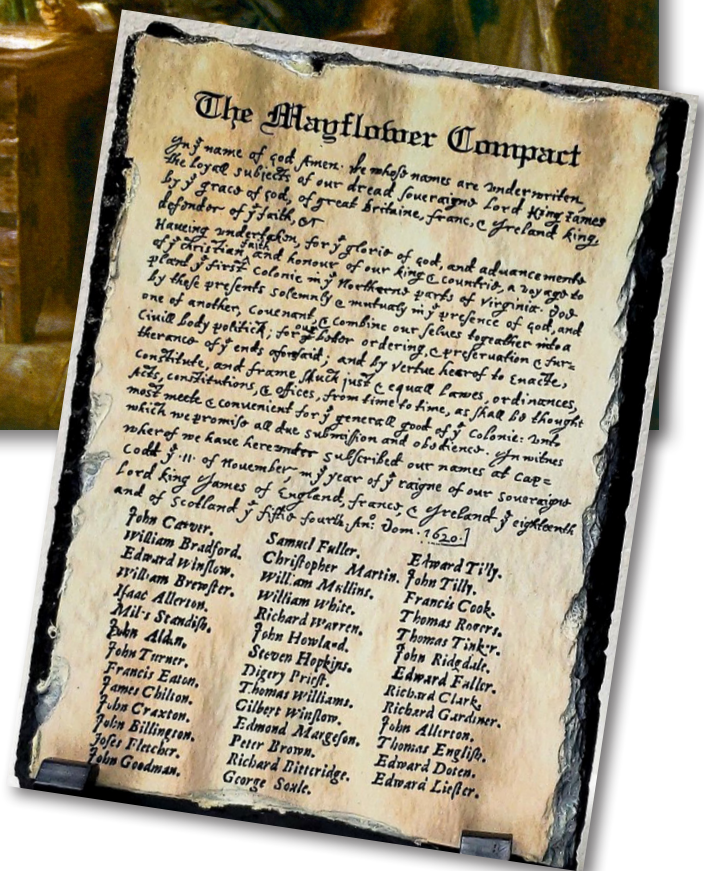 The Mayflower Compact
In yͤ name of god Amen. We whose names are underwriten,
the loyall subjects of our dread soveraigne Lord King James
by yͤ grace of god, of great Britaine, franc, & Ireland king,
defender of yͤ faith, &c
Haveing undertaken, for yͤ glorie of god, and advancemente
of yͤ christian faith and honour of our king & countrie, a voyage to
plant yͤ first colonie in yͤ Northerne parts of virginia. doe
by these presents solemnly & mutualy in yͤ presence of god, and
one of another, covenant, & combine our selves togeather into a
Civill body politick; for our better ordering, & preservation & fur=
therance of yͤ ends aforesaid; and by vertue hearof to Enacte,
constitute, and frame shuch just & equall lawes, ordinances,
Acts, constitutions, & offices, from time to time, as shall be thought
most meete & convenient for yͤ generall good of yͤ Colonie: unto
which we promise all due submission and obedience. In witnes
wherof we have hereunder subscribed our names at Cap=
Codd yͤ .11. of November, in yͤ year of yͤ raigne of our soveraigne
Lord king James of England, france, & Ireland yͤ eighteenth
and of Scotland yͤ fiftie fourth. An: Dom. 1620.
John Carver.
William Bradford.
Edward Winslow.
William Brewster.
Isaac Allerton.
Miles Standish.
John Aldan.
John Turner.
Francis Eaton.
James Chilton.
John Craxton.
John Billington.
Joses Fletcher.
John Goodman.
Samuel Fuller.
Christopher Martin.
William Mullins.
William White.
Richard Warren.
John Howland.
Steven Hopkins.
Digery Priest.
Thomas Williams.
Gilbert Winslow.
Edmond Margeson.
Peter Brown.
Richard Bitteridge.
George Soule.
Edward Tilly.
John Tilly.
Francis Cook.
Thomas Rogers.
Thomas Tinker.
John Ridgdale.
Edward Fuller.
Richard Clark.
Richard Gardiner.
John Allerton.
Thomas English.
Edward Doten.
Edward Liester.